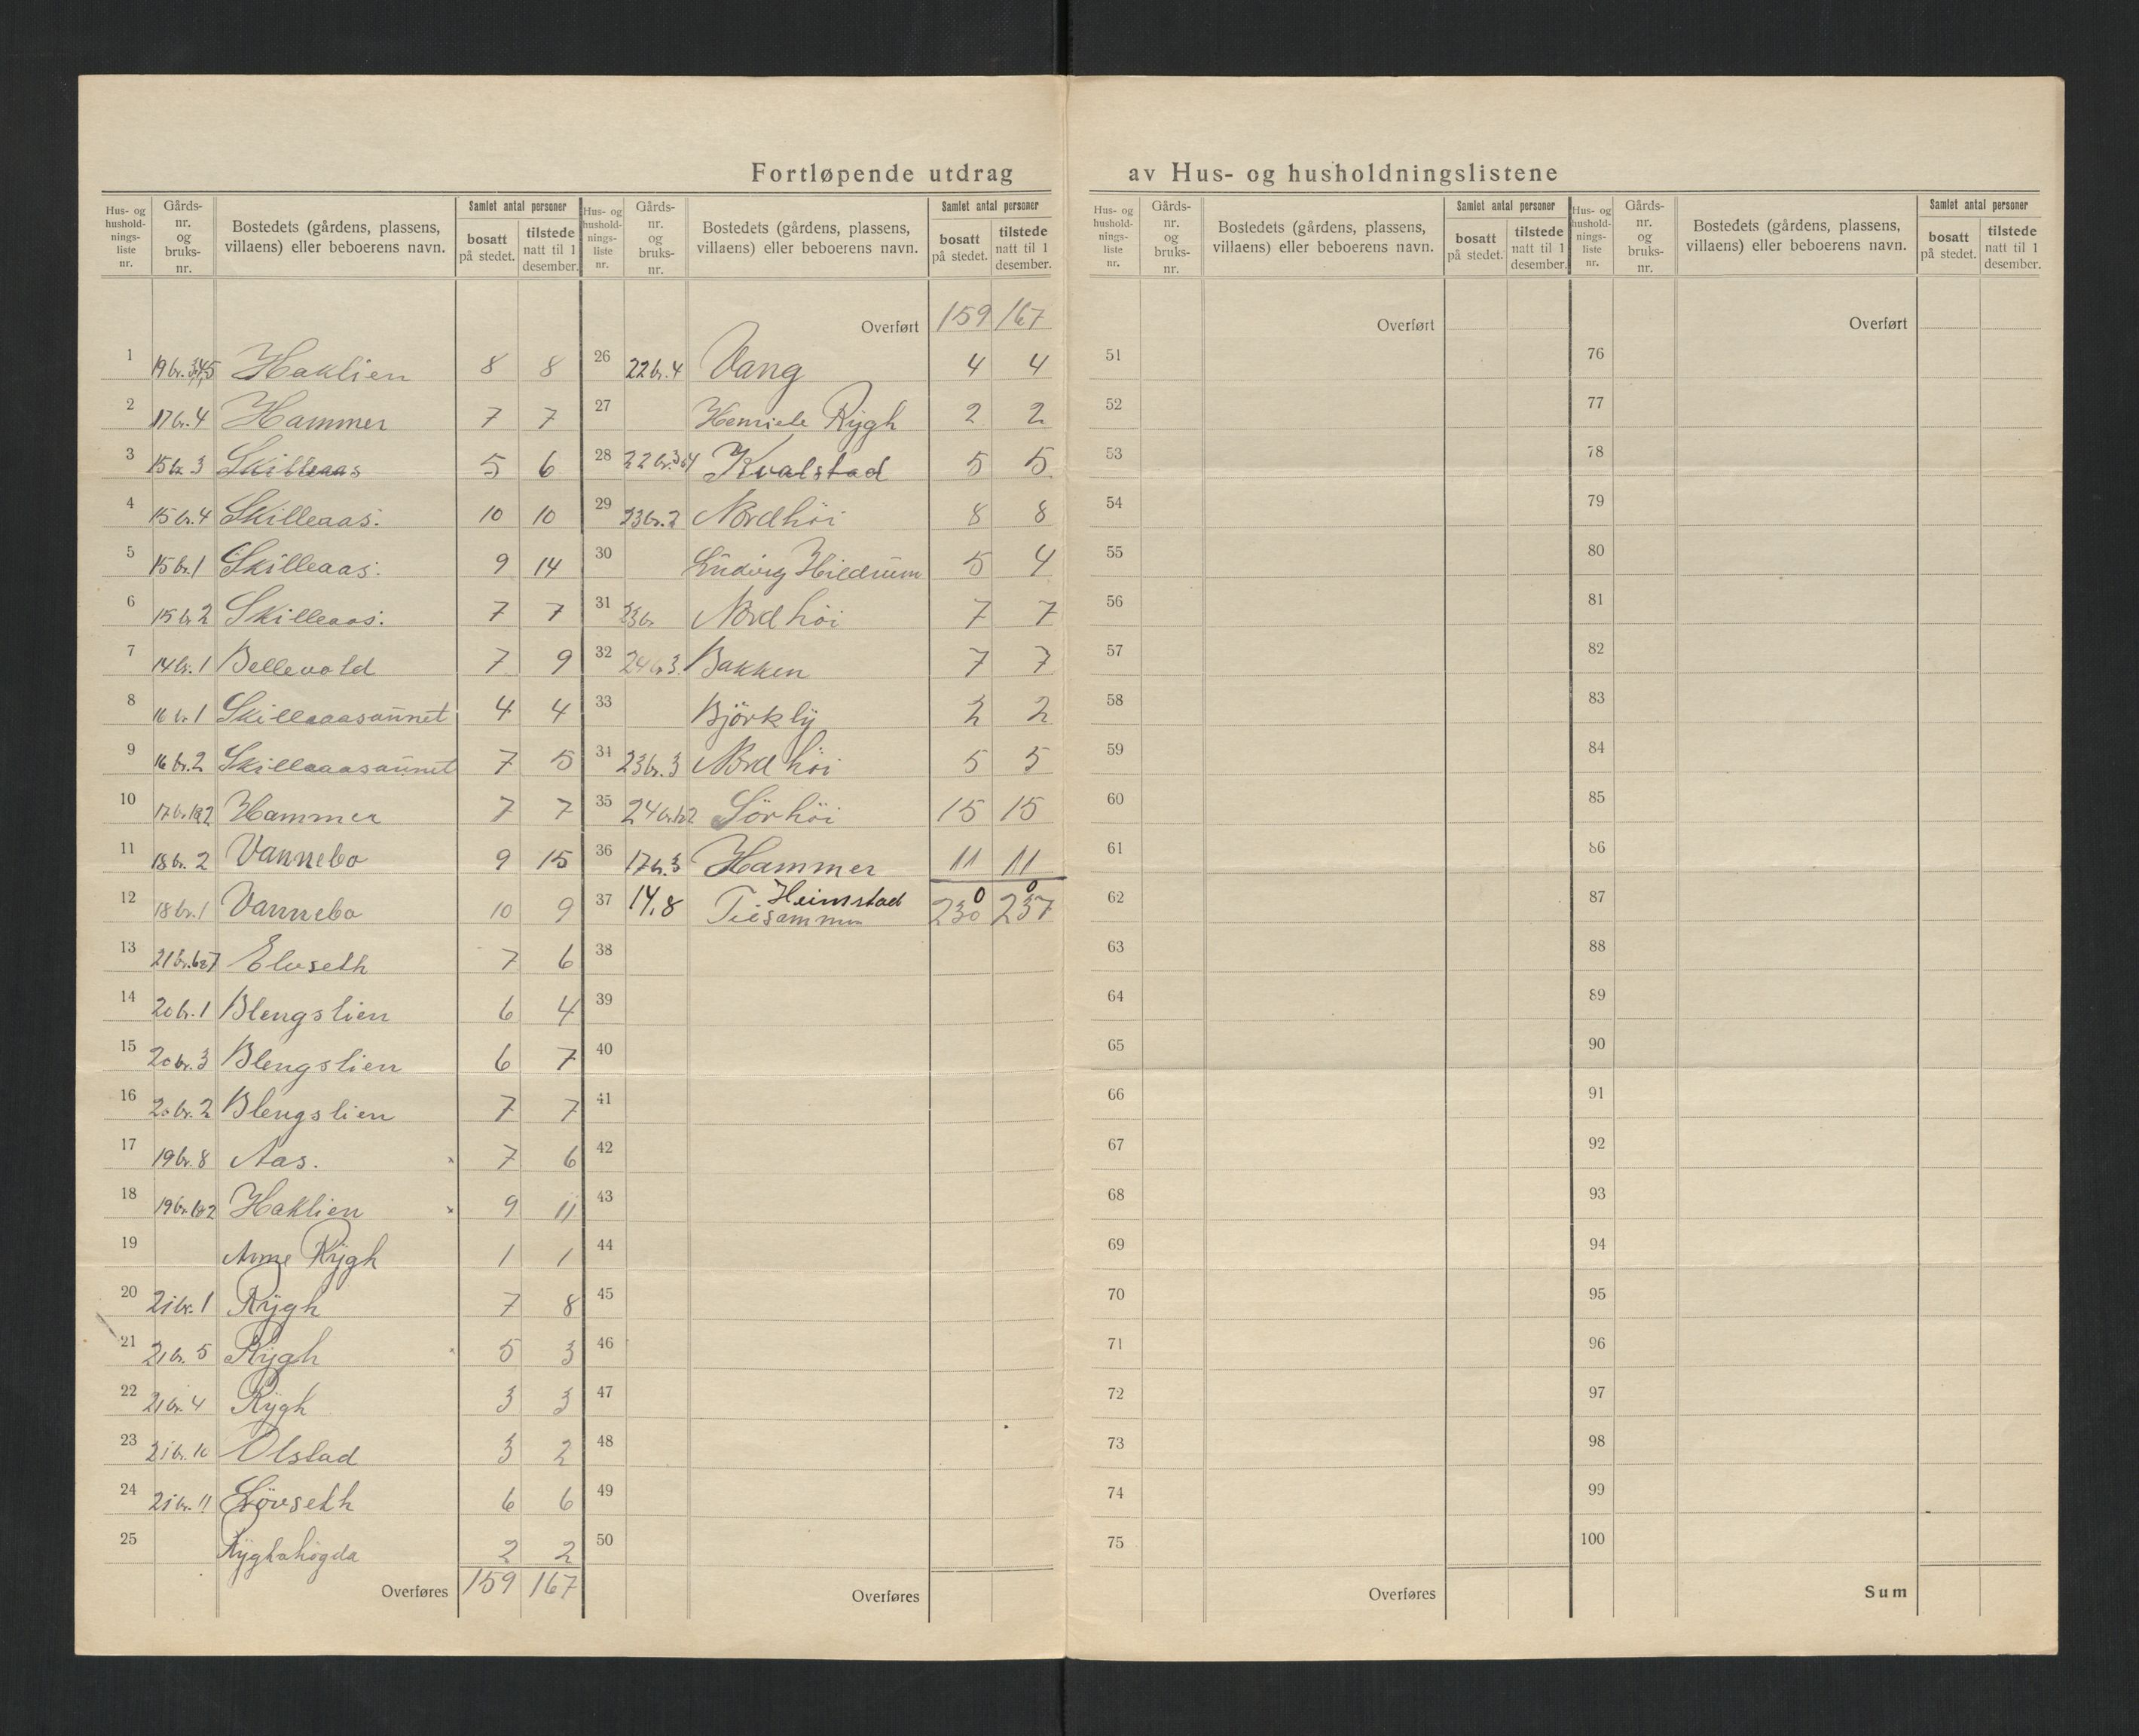 Fortløpende utdrag av Hus- og husholdningslistene
Hus- og hushold-nings-liste nr. Gårds-nr. og bruks-nr. Bostedets (gårdens, plassens, villaens) eller beboerens navn. Samlet antal personer bosatt på stedet. tilstede natt til 1 desember.
1 19 br. 3,4,5 Haklien 8 8
2 17 br. 4 Hammer 7 7
3 15 br. 3 Skilleaas 5 6
4 15 br. 4 Skilleaas. 10 10
5 15 br. 1 Skilleaas. 9 14
6 15 br. 2 Skilleaas. 7 7
7 14 br. 1 Bellevold 7 9
8 16 br. 1 Skilleaasaunet 4 4
9 16 br. 2 Skilleaasaunet 7 5
10 17 br. 1&2 Hammer 7 7
11 18 br. 2 Vannebo 9 15
12 18 br. 1 Vannebo 10 9
13 21 br. 6&7 Elvseth 7 6
14 20 br. 1 Blengslien 6 4
15 20 br. 3 Blengslien 6 7
16 20 br. 2 Blengslien 7 7
17 19 br. 8 Aas. 7 6
18 19 br. 1&2 Haklien 9 11
19 Arne Rygh 1 1
20 21 br. 1 Rygh 7 8
21 21 br. 5 Rygh 5 3
22 21 br. 4 Rygh 3 3
23 21 br. 10 Olstad 3 2
24 21 br. 11 Lövseth 6 6
25 Ryghshögda 2 2
Overføres 159 167
Hus- og hushold-nings-liste nr. Gårds-nr. og bruks-nr. Bostedets (gårdens, plassens, villaens) eller beboerens navn. Samlet antal personer bosatt på stedet. tilstede natt til 1 desember.
Overført 159 167
26 22 br. 4 Vang 4 4
27 Rygh 2 2
28 22 br. Kvalstad 5 5
29 23 br. 2 Nordhöi 8 8
30 Ludvig Hildrum 5 4
31 23 br. Nordhöi 7 7
32 24 br. 3. Bakken 7 7
33 Björkly 2 2
34 23 br. 3 Nordhöi 5 5
35 24 br. 1&2 Sörhöi 15 15
36 17 br. 3 Hammer 11 11
37 14,8 Heimstad 0 0
Tilsammen 230 237
38
39
40
41
42
43
44
45
46
47
48
49
50
Overføres
Hus- og hushold-nings-liste nr. Gårds-nr. og bruks-nr. Bostedets (gårdens, plassens, villaens) eller beboerens navn. Samlet antal personer bosatt på stedet. tilstede natt til 1 desember.
Overført
51
52
53
54
55
56
57
58
59
60
61
62
63
64
65
66
67
68
69
70
71
72
73
74
75
Overføres
Hus- og hushold-nings-liste nr. Gårds-nr. og bruks-nr. Bostedets (gårdens, plassens, villaens) eller beboerens navn. Samlet antal personer bosatt på stedet. tilstede natt til 1 desember.
Overført
76
77
78
79
80
81
82
83
84
85
86
87
88
89
90
91
92
93
94
95
96
97
98
99
100
Sum